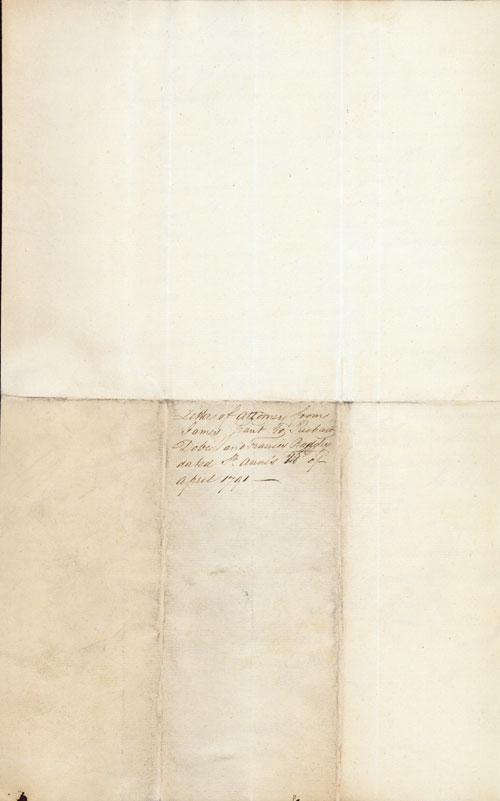 Letter of attorney from
James Gant To Richard
Dobie and Francis Badgley
dated St. Anne's of
April 1791 —